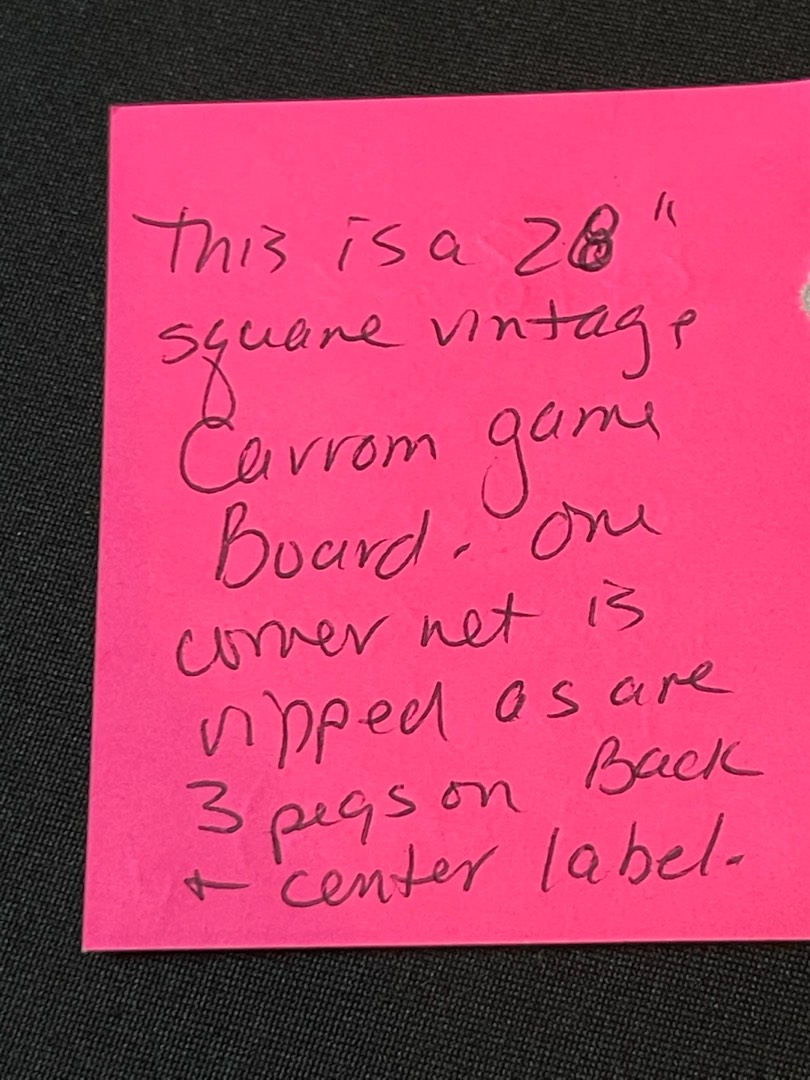 This is a 28"
square vintage
Carrom game
Board. One
corner net is
ripped as are
3 pegs on Back
+ center label.